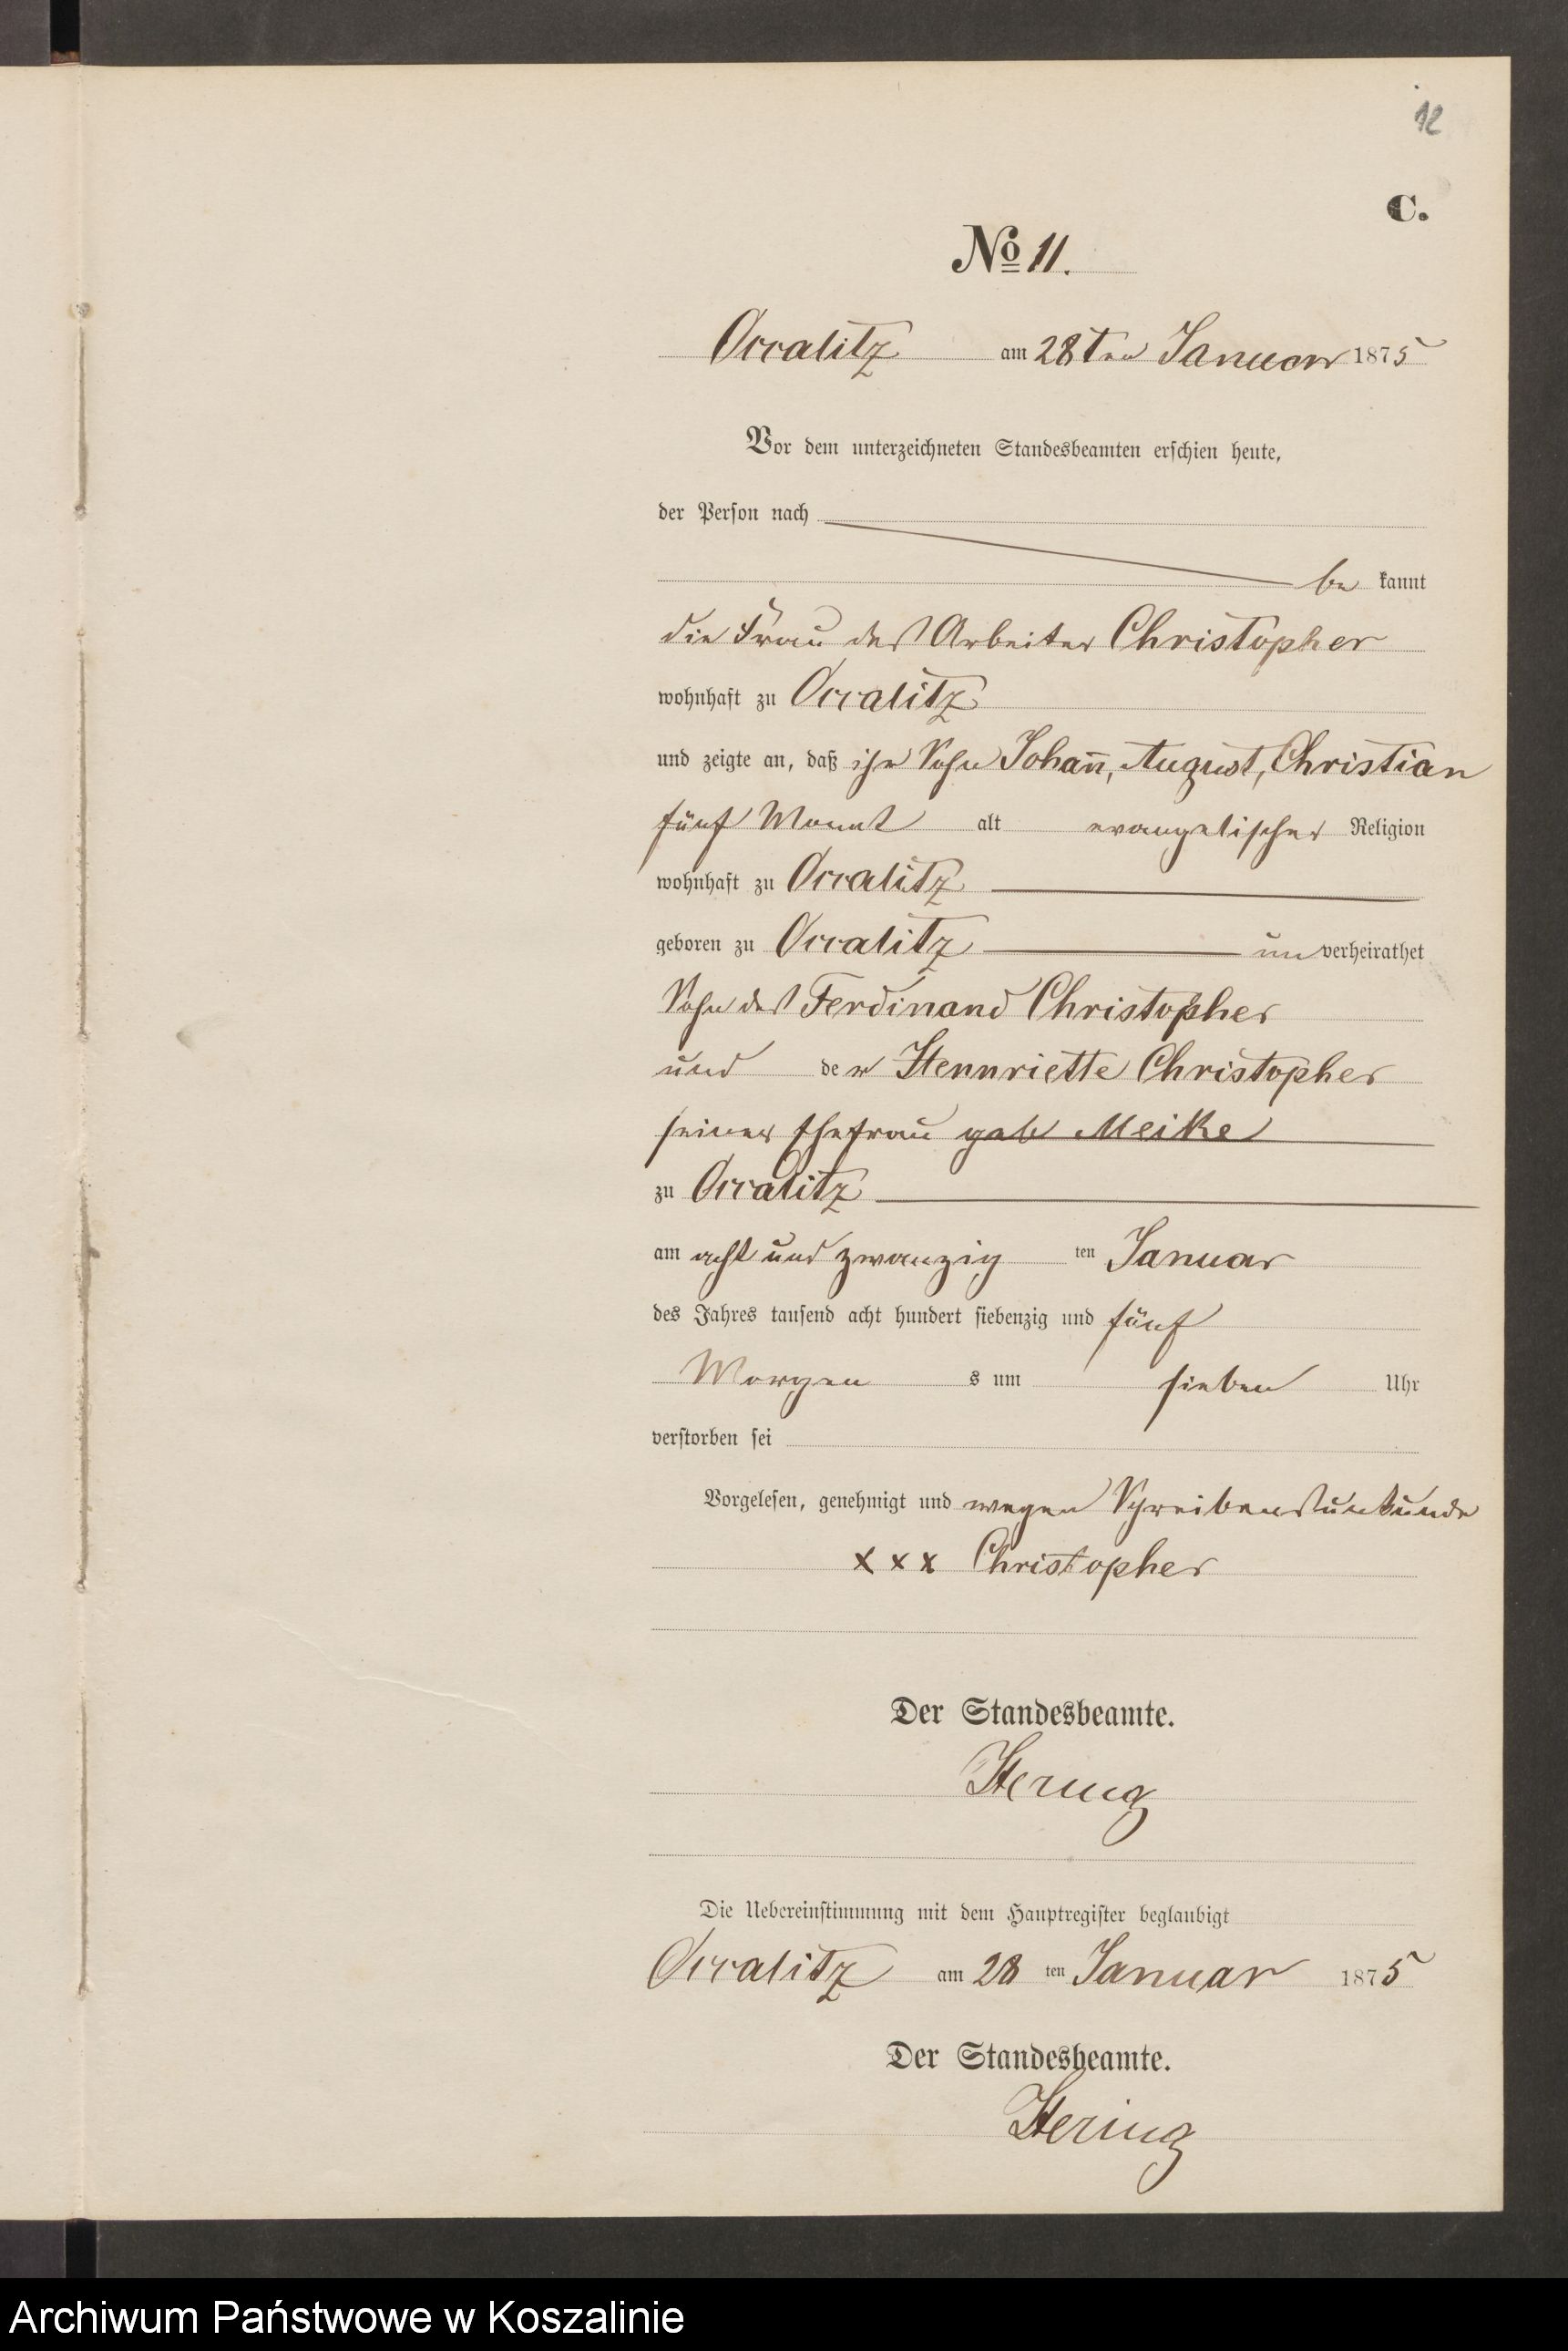 12
C.
No 11.
Occalitz am 28ten Januar 1875
Vor dem unterzeichneten Standesbeamten erschien heute,
der Person nach
be kannt
die Frau des Arbeiter Christopher
wohnhaft zu Occalitz
und zeigte an, daß ihr Sohn Johan̄, August, Christian
fünf Monat alt evangelischer Religion
wohnhaft zu Occalitz
geboren zu Occalitz un verheirathet
Sohn des Ferdinand Christopher
und de r Hennriette Christopher
seiner Ehefrau geb Meike
zu Occalitz
am acht und zwanzig ten Januar
des Jahres tausend acht hundert siebenzig und fünf
Morgen s um sieben Uhr
verstorben sei
Vorgelesen, genehmigt und wegen Schreibensunkunde
x x x Christopher
Der Standesbeamte.
Hering
Die Uebereinstimmung mit dem Hauptregister beglaubigt
Occalitz am 28 ten Januar 1875
Der Standesbeamte.
Hering
Archiwum Państwowe w Koszalinie